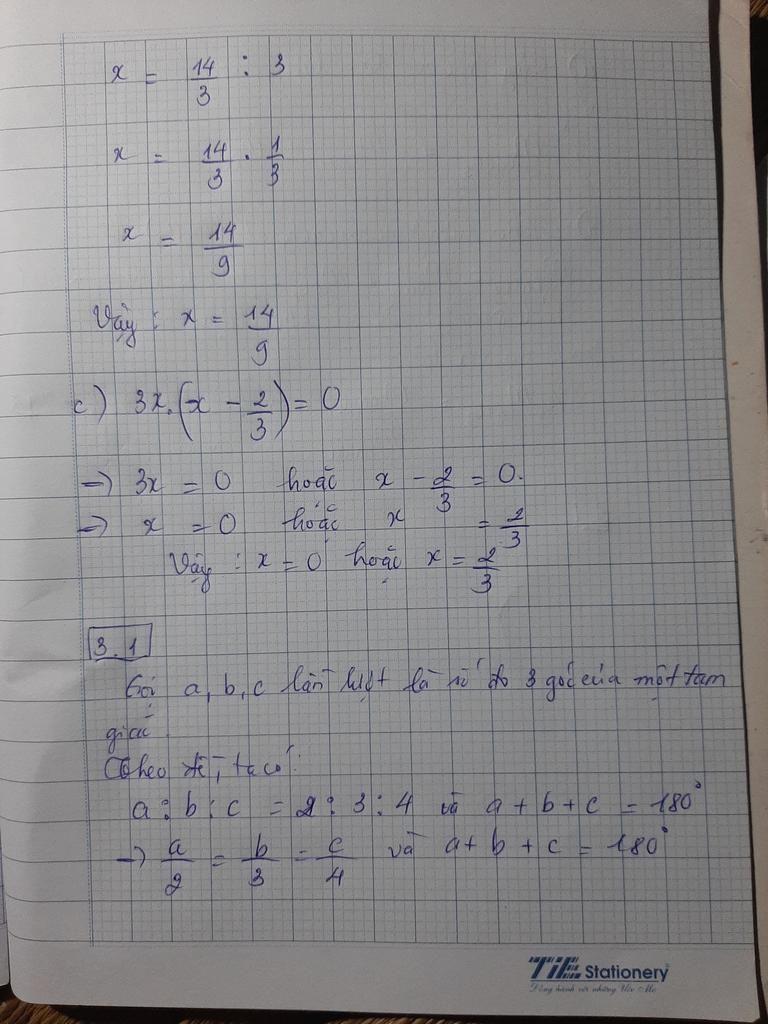 x = 14/3 : 3
x = 14/3 . 1/3
x = 14/9
Vậy : x = 14/9
c) 3x.(x - 2/3) = 0
→ 3x = 0 hoặc x - 2/3 = 0.
→ x = 0 hoặc x = 2/3
Vậy : x = 0 hoặc x = 2/3
3.1
Gọi a, b, c lần lượt là số đo 3 góc của một tam
giác
Theo đề, ta có:
a : b : c = 2 : 3 : 4 và a + b + c = 180°
→ a/2 = b/3 = c/4 và a + b + c = 180°
TiE Stationery
Đồng hành với những Ước Mơ